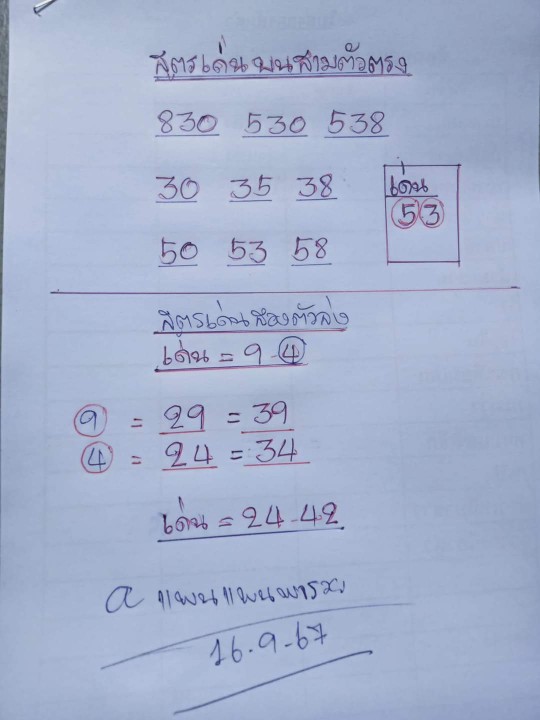 สูตรเด่นบนสามตัวตรง
830 530 538
30 35 38
เด่น
5 3
50 53 58
สูตรเด่นสองตัวล่าง
เด่น = 9-4
9 = 29 = 39
4 = 24 = 34
เด่น = 24-42
a แพนแพนพารวย
16.9.67